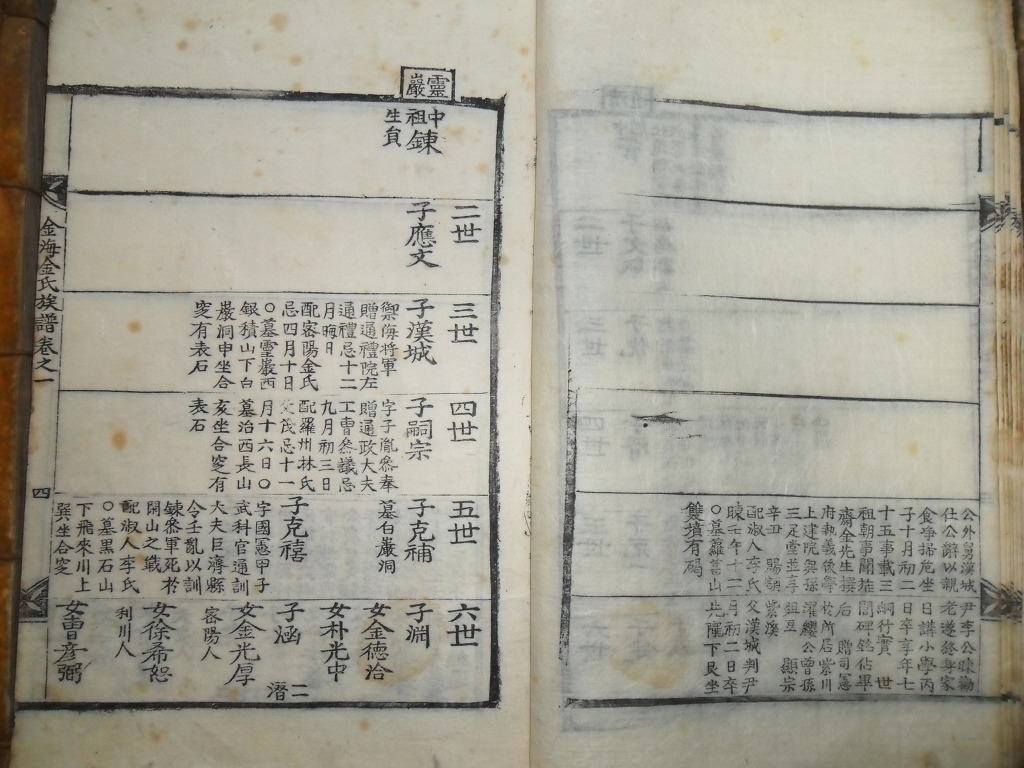 公外舅漢城尹李公暕勸
仕公辭以親老遂終身家
食爭掃危坐日講小學丙
子十月初二日卒享年七
十五事載三綱行實 世
祖朝事聞旌閭碑銘佔畢
齋金先生撰后 贈司憲
府執義後學於所居紫川
上建院與孫濯纓公曾孫
三足堂並享俎豆 顯宗
辛丑 賜額紫溪
配淑人李氏父漢城判尹
暕壬午十二月初二日卒
○墓蘿葍山 下艮坐
雙墳有碣
靈巖
中祖鍊
生員
二世
子應文
三世
子漢城
禦侮將軍
贈通禮院左
通禮忌十二
月晦日
配密陽金氏
忌四月十日
○墓靈巖西
銀積山下白
巖洞申坐合
窆有表石
四世
子嗣宗
字子胤參奉
贈通政大夫
工曹參議忌
九月初三日
配羅州林氏
父茂忌十一
月十六日○
墓治西長山
亥坐合窆有
表石
五世
子克補
墓白巖洞
子克禧
字國憲甲子
武科官通訓
大夫巨濟縣
令壬亂以訓
鍊參軍死於
閑山之戰
配淑人李氏
○墓黑石山
下飛來川上
巽坐合窆
六世
子淵
女金德洽
女朴光中
子涵
二潛
女金光厚
密陽人
女徐希恕
利川人
女曺彦弼
金海金氏族譜卷之一
四